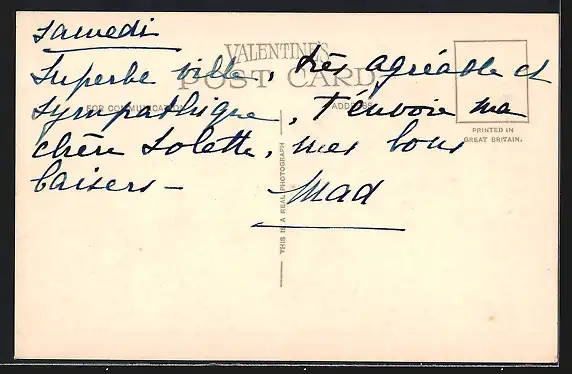 Samedi
VALENTINE'S
POST CARD
Superbe ville, très agréable et
FOR COMMUNICATION
ADDRESS
sympathique, t'envoie ma
PRINTED IN
GREAT BRITAIN.
chère Solette, mes bons
baisers —
Mad
THIS IS A REAL PHOTOGRAPH